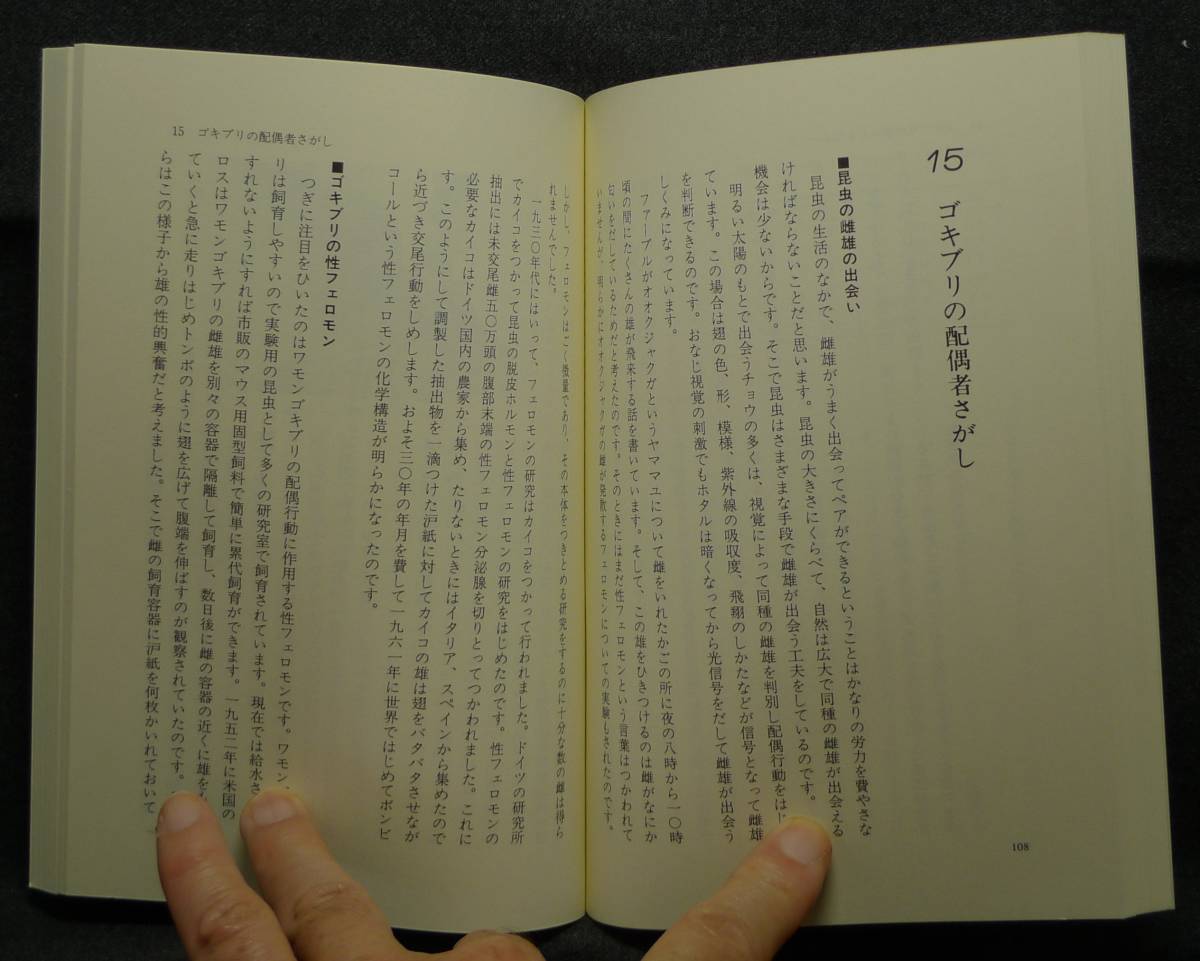 15 ゴキブリの配偶者さがし
■昆虫の雌雄の出会い
昆虫の生活のなかで、雌雄がうまく出会ってペアができるということはかなりの労力を費やさな
ければならないことだと思います。昆虫の大きさにくらべて、自然は広大で同種の雌雄が出会える
機会は少ないからです。そこで昆虫はさまざまな手段で雌雄が出会う工夫をしているのです。
明るい太陽のもとで出会うチョウの多くは、視覚によって同種の雌雄を判別し配偶行動をはじ
ています。この場合は翅の色、形、模様、紫外線の吸収度、飛翔のしかたなどが信号となって雌雄
を判断できるのです。おなじ視覚の刺激でもホタルは暗くなってから光信号をだして雌雄が出会う
しくみになっています。
ファーブルがオオクジャクガというヤママユについて雌をいれたかごの所に夜の八時から一〇時
頃の間にたくさんの雄が飛来する話を書いています。そして、この雄をひきつけるのは雌がなにか
匂いをだしているためだと考えたのです。そのときにはまだ性フェロモンという言葉はつかわれて
いませんが、明らかにオオクジャクガの雌が発散するフェロモンについての実験もされたのです。
108
15 ゴキブリの配偶者さがし
しかし、フェロモンはごく微量であり、その本体をつきとめる研究をするのに十分な数の雌は得ら
れませんでした。
一九三〇年代にはいって、フェロモンの研究はカイコをつかって行われました。ドイツの研究所
でカイコをつかって昆虫の脱皮ホルモンと性フェロモンの研究をはじめたのです。性フェロモンの
抽出には未交尾雌五〇万頭の腹部末端の性フェロモン分泌腺を切りとってつかわれました。これに
必要なカイコはドイツ国内の農家から集め、たりないときにはイタリア、スペインから集めたので
す。このようにして調製した抽出物を一滴つけた沪紙に対してカイコの雄は翅をバタバタさせなが
ら近づき交尾行動をしめします。およそ三〇年の年月を費して一九六一年に世界ではじめてボンビ
コールという性フェロモンの化学構造が明らかになったのです。
■ゴキブリの性フェロモン
つぎに注目をひいたのはワモンゴキブリの配偶行動に作用する性フェロモンです。ワモン
リは飼育しやすいので実験用の昆虫として多くの研究室で飼育されています。現在では給水さ
すれないようにすれば市販のマウス用固型飼料で簡単に累代飼育ができます。一九五二年に米国の
ロスはワモンゴキブリの雌雄を別々の容器で隔離して飼育し、数日後に雌の容器の近くに雄を
ていくと急に走りはじめトンボのように翅を広げて腹端を伸ばすのが観察されていたのです。
らはこの様子から雄の性的興奮だと考えました。そこで雌の飼育容器に沪紙を何枚かいれておいて